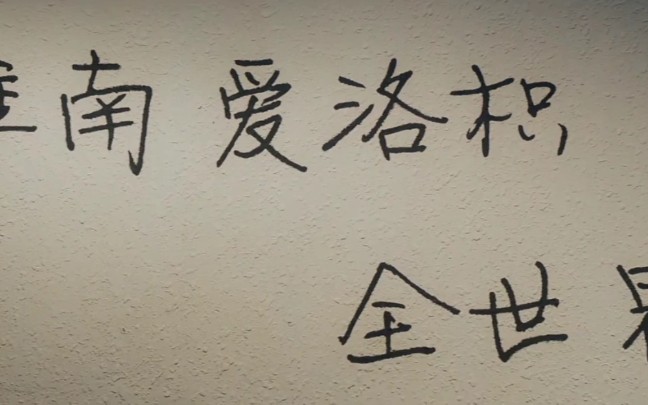 南爱洛枳
全世